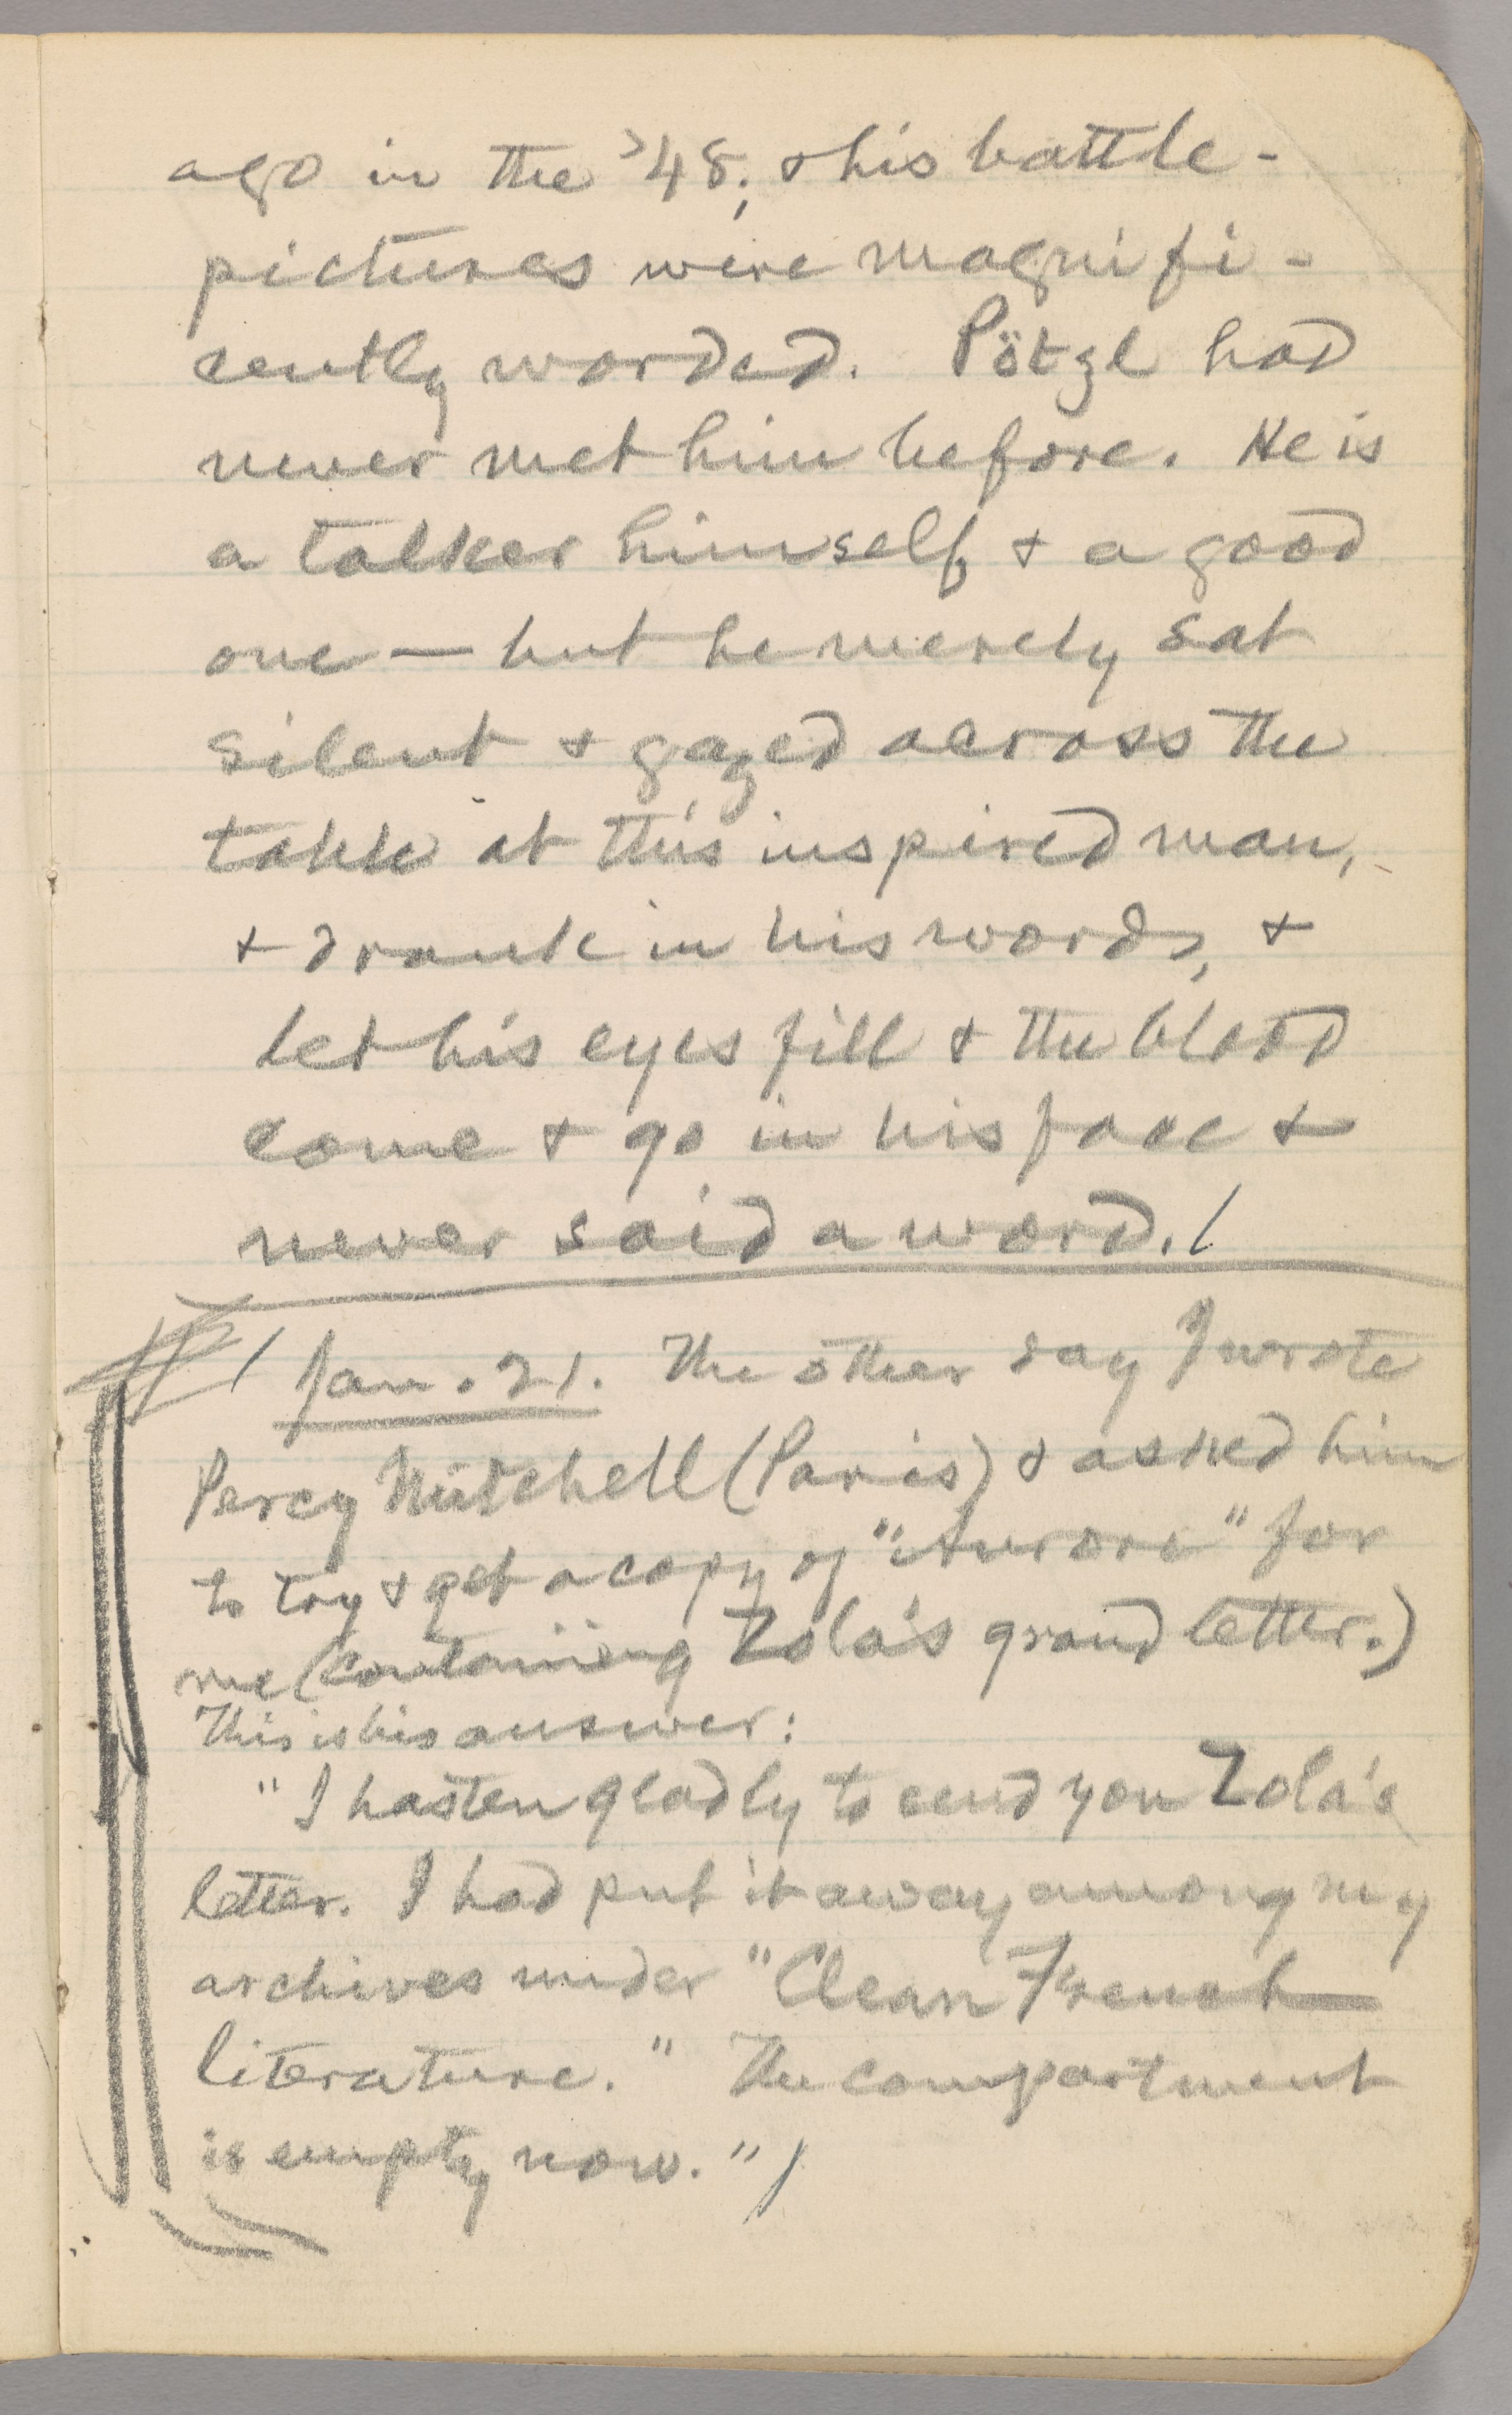 ago in the '48; & his battle-
pictures were magnifi-
cently worded. Pötzl had
never met him before. He is
a talker himself, & a good
one — but he merely sat
silent & gazed across the
table at this inspired man,
& drank in his words, &
let his eyes fill & the blood
come & go in his face &
never said a word./
/ Jan. 21. The other day I wrote
Percy Mitchell (Paris) & asked him
to try & get a copy of "Aurore" for
me (containing Zola's grand letter.)
This is his answer:
"I hasten gladly to send you Zola's
letter. I had put it away among my
archives under "Clean French
literature." The compartment
is empty now." /